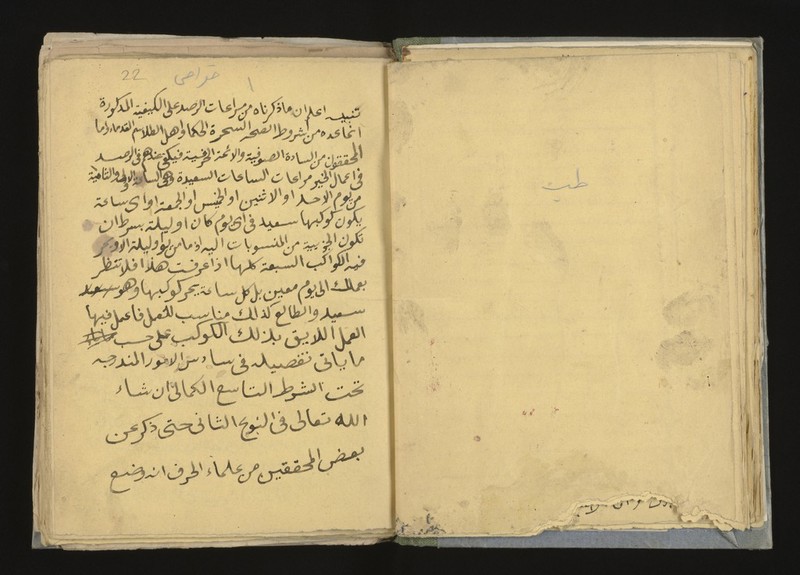 22 خواص ١
تنبيه اعلم ان ما ذكرناه من مراعات الرصد على الكيفية المذكورة
انما عده من شروط الصحة السحرة الحكما واهل الطلاسم القدماء واما
المحققون من السادة الصوفية والائمة الحرفية فيكفى عندهم فى الرصد
فى اعمال الخير مراعات الساعات السعيدة وهى الساعة الاولى والثامنة
من يوم الاحد او الاثنين او الخميس او الجمعة او اى ساعة
يكون كوكبها سعيد فى اى يوم كان او ليلة بشرط ان
تكون الجزئية من المنسوبات اليه اذ ما من يوم وليلة الا ويمر
فيه الكواكب السبعة كلها اذا عرفت هذا فلا تنتظر
بعملك الى يوم معين بل كل ساعة يمر كوكبها وهو
سعيد والطالع كذلك مناسب للعمل فاعمل فيها
العمل اللايق بذلك الكوكب على حسب
ما ياتى تفصيله فى سادس الامور المندرجه
تحت الشرط التاسع الكمالى ان شاء
الله تعالى فى النوع الثانى حتى ذكر عن
بعض المحققين من علماء الحرف انه وضع
طب